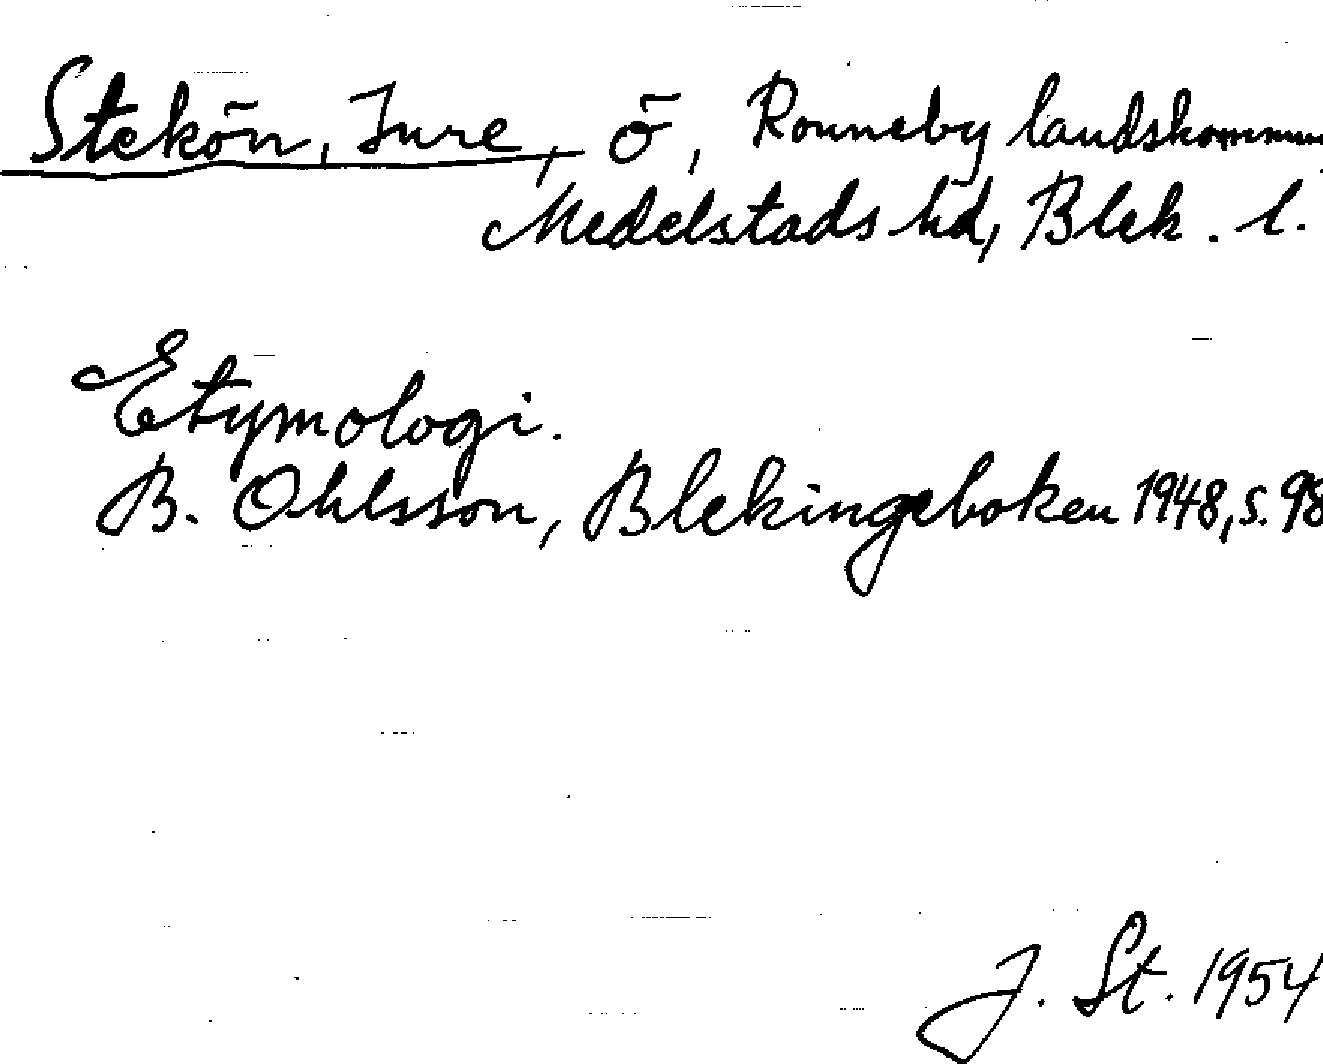 Stekön, Inre, ö, Ronneby landskommun
Medelstads hd, Blek. l.
Etymologi.
B. Ohlsson, Blekingeboken 1948, s. 98
J. St. 1954